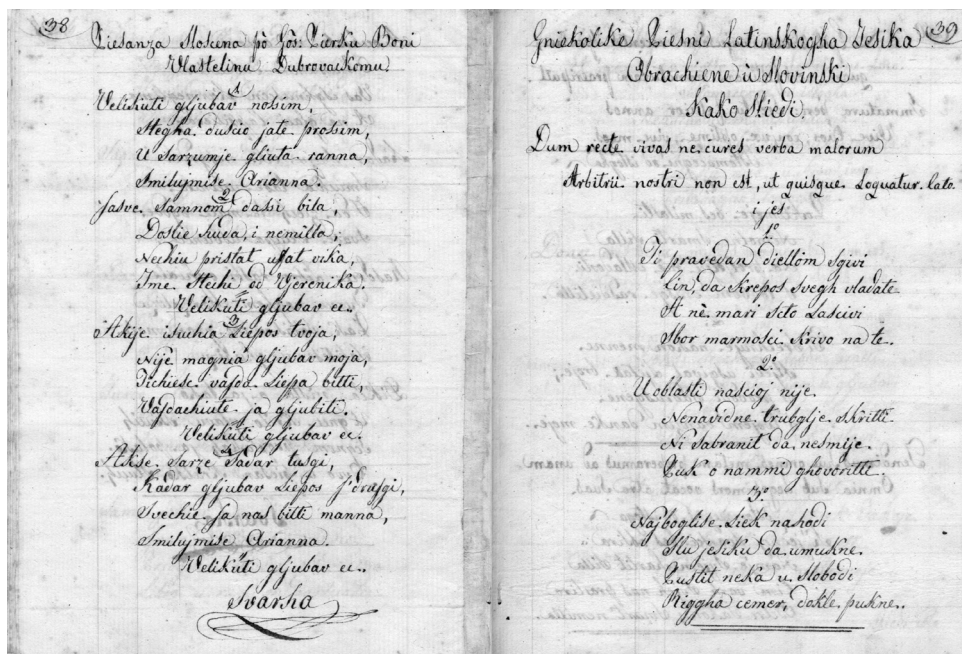 38
Piesanza Slosena pò Gòs: Pierku Boni
Vlastelinu Dubrovackomu.
1
Velikuti gljubav nosim,
Stegha duscio jate prosim,
U Sarzumje gliuta ranna,
Smilujmise Arianna.
2
Jasve Samnom dabi bila,
Doslie huda, i nemilla,
Nechiu pristat uffat vika,
Ime Stechi od Vjerenika.
Velikuti gljubav ec.
3
Akije isuhia Liepos tvoja,
Nije magnia gljubav moja,
Tichiesc vajda Liepa bitti,
Vajdachiute ja gljubiti.
Velikuti gljubav ec.
4
Akse Sarze Sadar tusgi,
Kadar gljubav Liepos sdrusgi,
Svechie ja nas bitti manna,
Smilujmise Arianna.
Velikuti gljubav ec..
Svarha
39
Gniekolike Piesni Latinskogha Jesika
Obrachiene ù Slovinski
Kako Sliedi.
Dum recte vivas ne cures verba malorum
Arbitrii nostri non est, ut quisque Loquatur. Cato.
i jes
1º
Ti pravedan diellom sgivi
Cin, da Krepos svegh vladate
A nè mari Scto Lascivi
Sbor marmosci Krivo na te.
2º
U oblasti nascioj nije
Nenavidne trubglje skritti
Ni Sabranit da nesmije
Puk o nammi ghovoritti.
3º
Najboglise Liek nahodi
Slu jesiku da umukne
Pustit neka u Slobodi
Riggha cemer, dakle pukne..